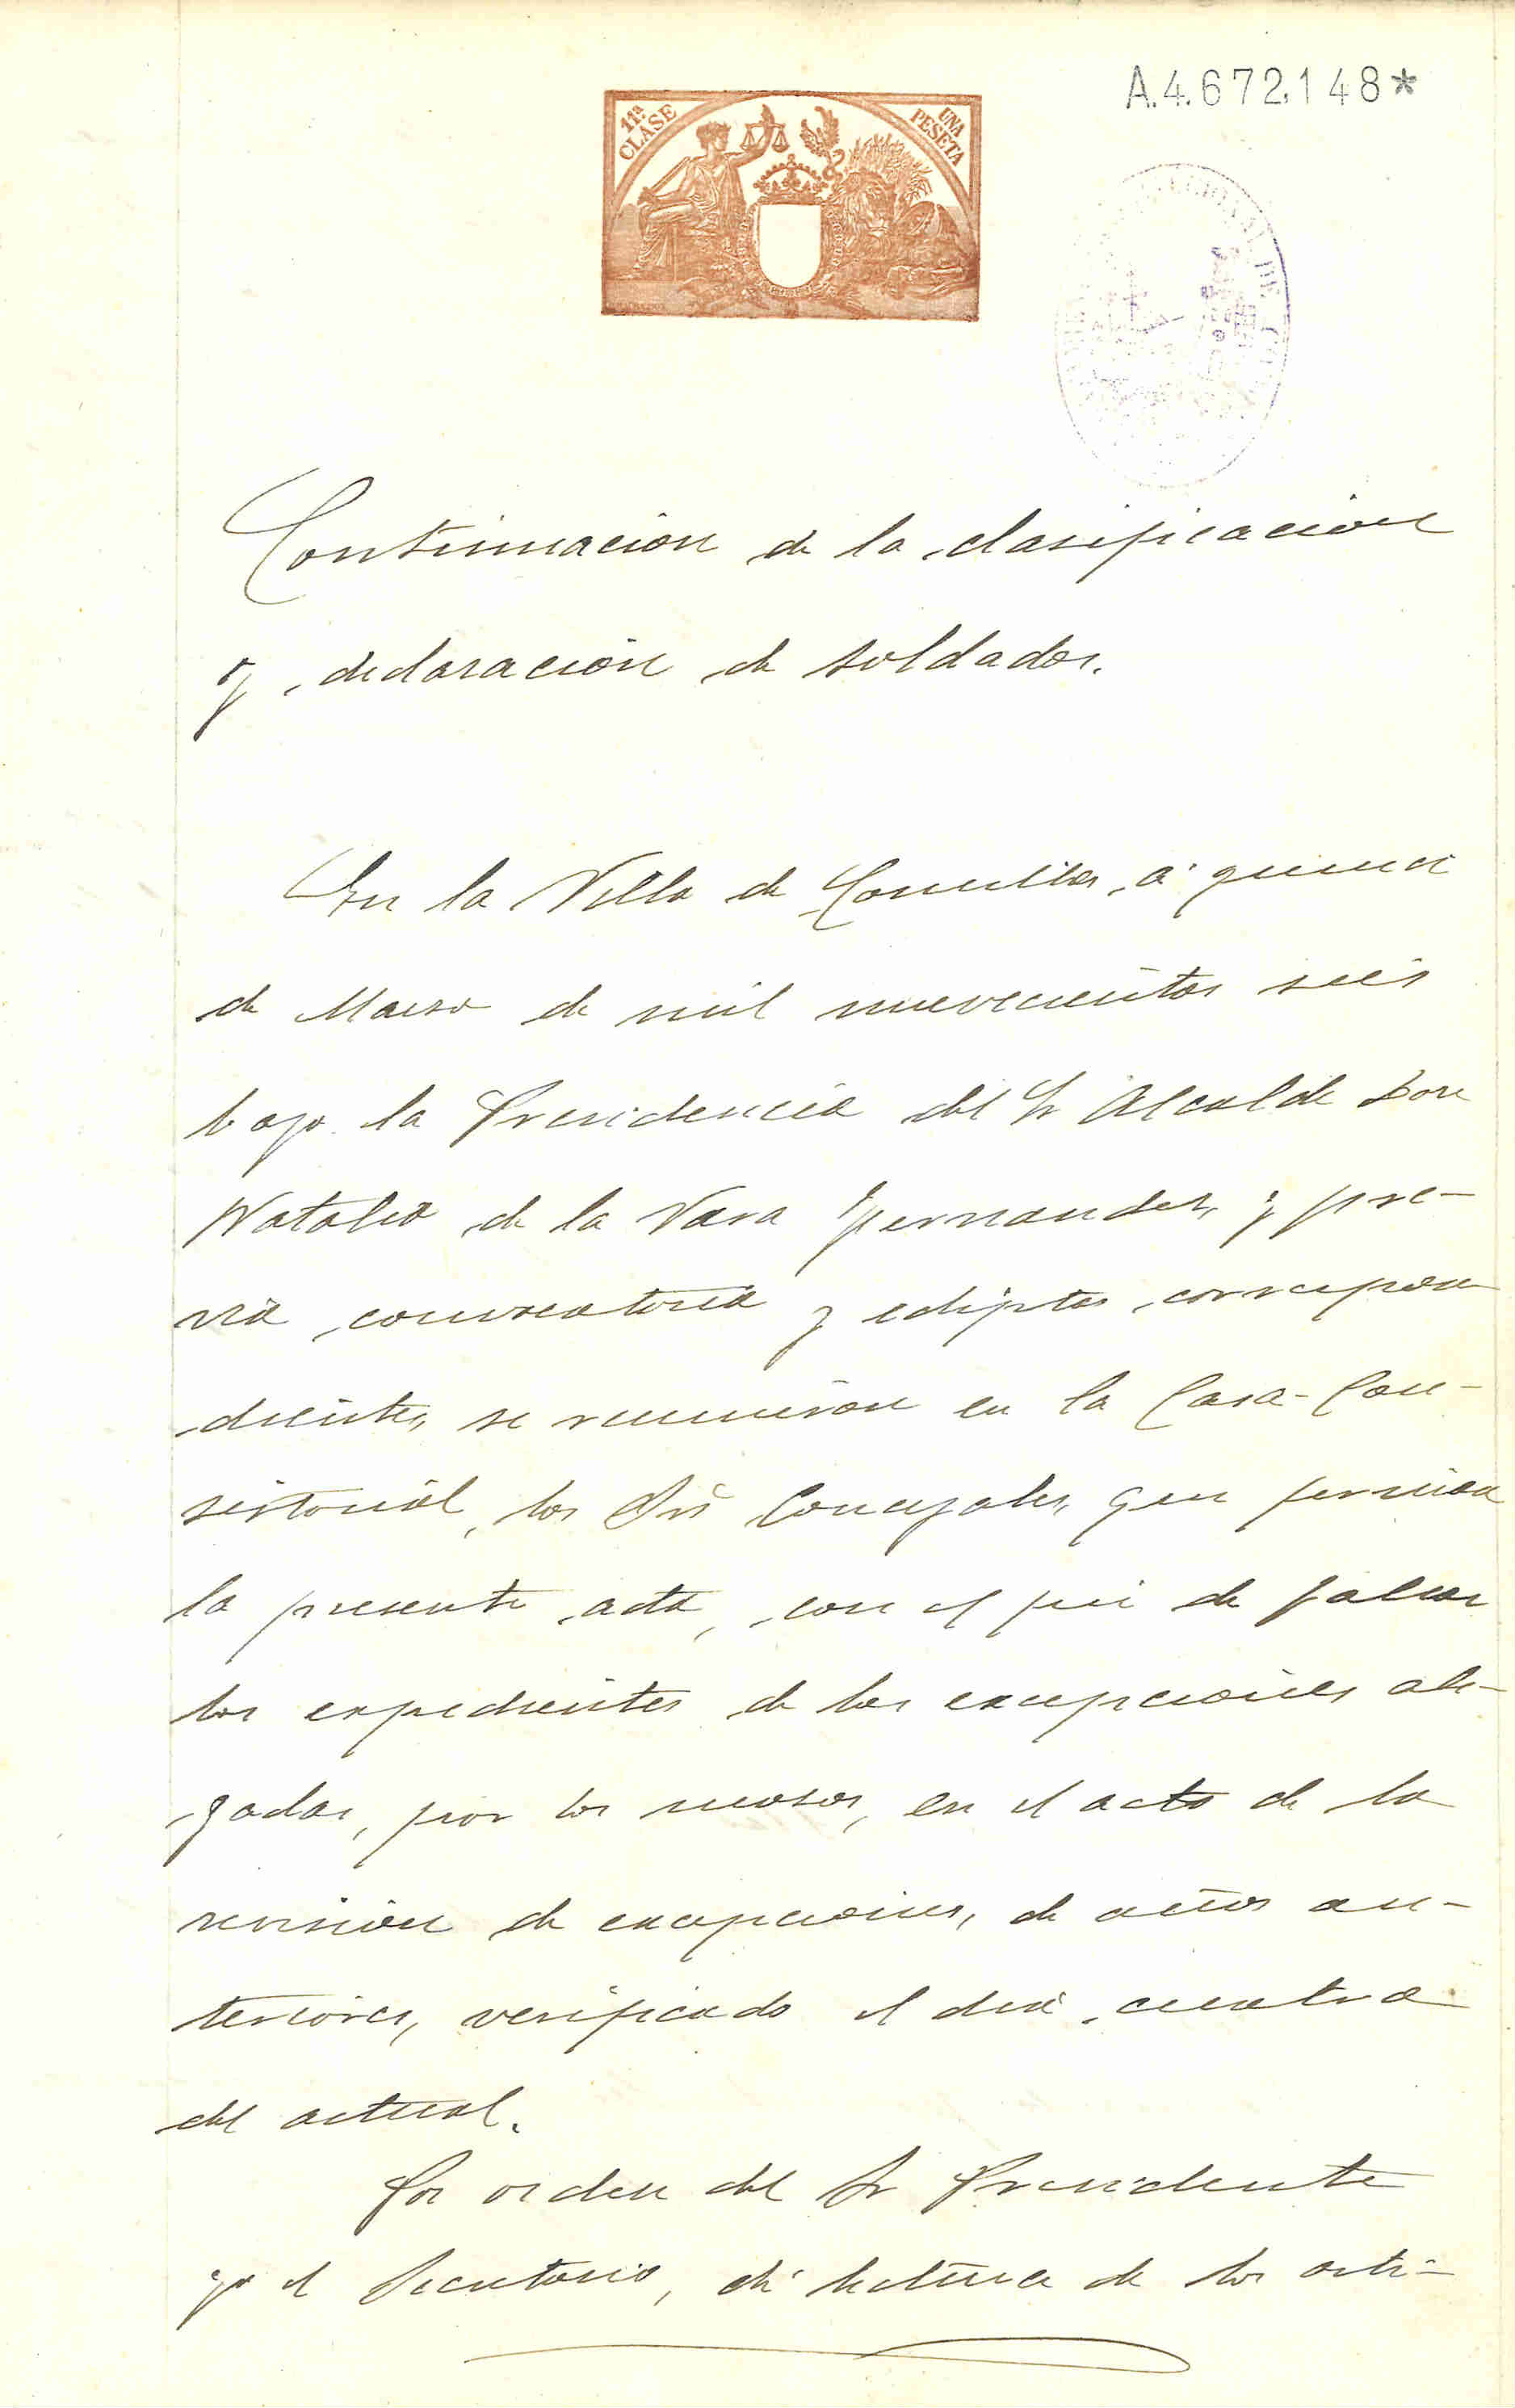 A.4.672.148*
11ª CLASE
UNA PESETA
Continuación de la clasificación
y declaración de soldados.
En la Villa de Comillas, á quince
de Marzo de mil nuevecientos seis
bajo la Presidencia del Sr Alcalde Don
Natalio de la Vara Fernandez, y pre-
via convocatoria y ediptos correspon
dientes, se reunieron en la Casa-Con-
sistorial, los Srs Concejales, que firman
la presente acta, con el fin de fallar
los expedientes de las excepciones ale-
gadas, por los mozos, en el acto de la
revisión de excepciones, de años an-
teriores, verificado el dia cuatro
del actual.
Por orden del Sr Presidente
yo el Secretario, dí lectura de los arti-